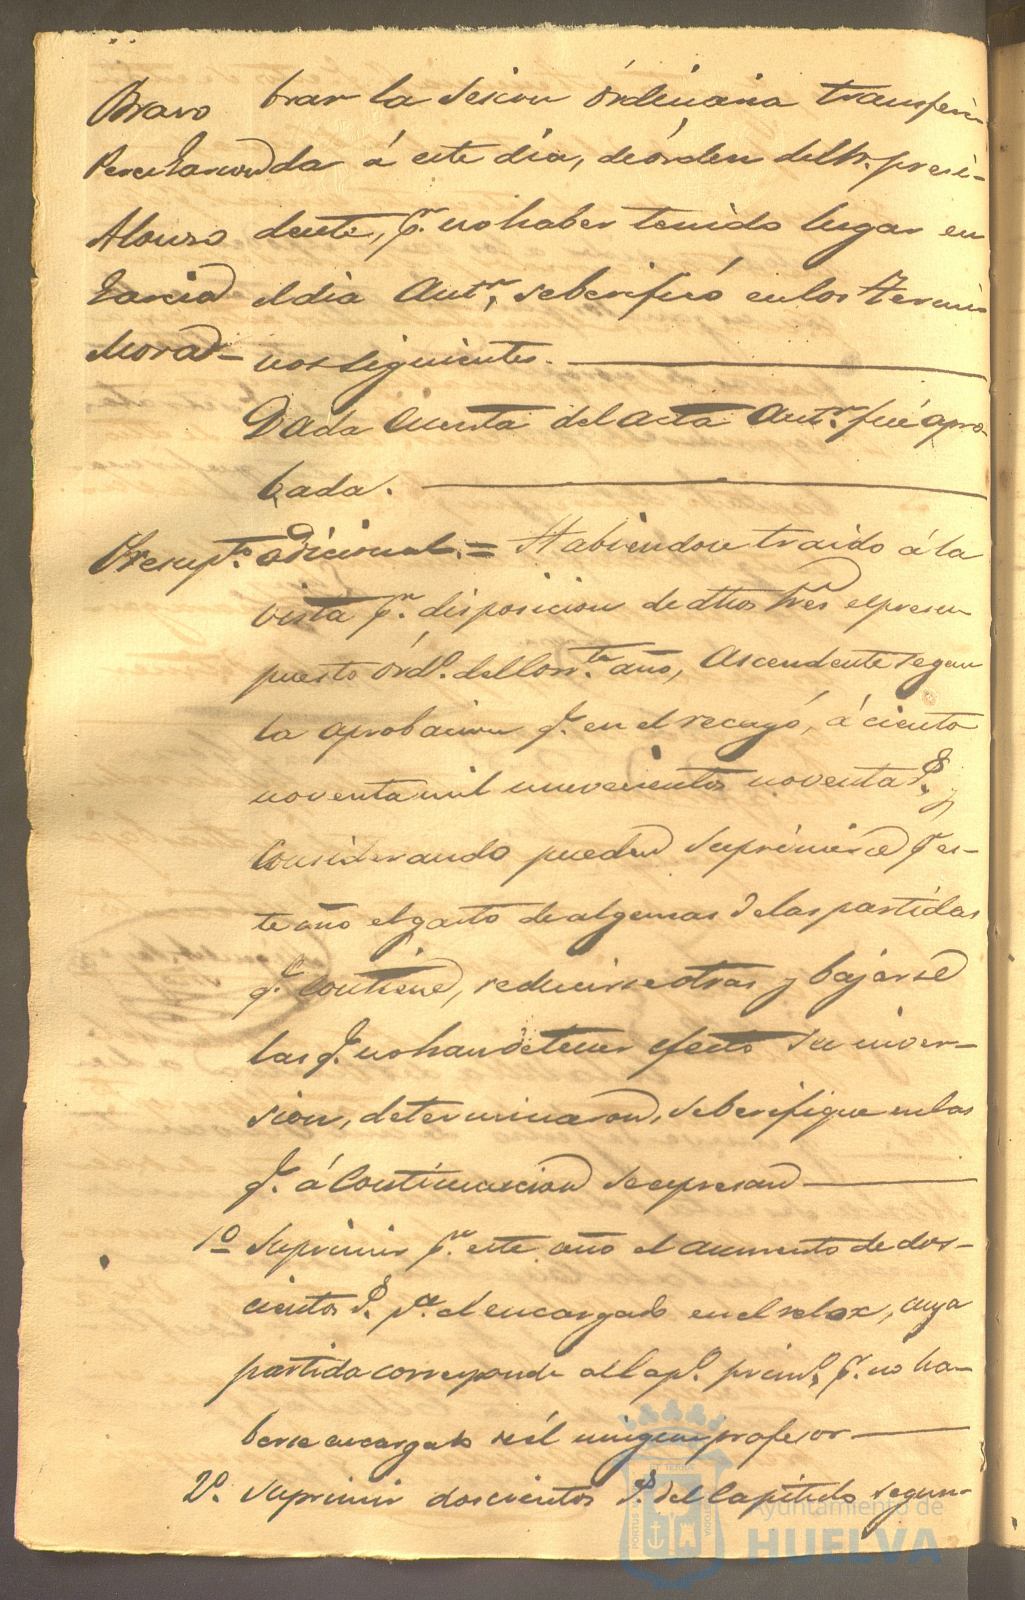 Bravo brar la Sesion órdinaria transferi-
Perez Garcon da á este dia, de órden del Sr. presi-
Alonso dente, pr. no haber tenido lugar en
Garcia el dia Antr., se berificó en los termi
Mora = nos siguientes.
Dada Cuenta del acta Antr. fué apro-
bada.
Presupto. adicional. = Habiendose traido á la
vista pr. disposicion de dhos Sres el presu
puesto órdo. del Corrte. año, Ascendente segun
la aprobacion qe. en el recayó, á ciento
noventa mil nuevecientos noventa Rs. y
Considerando pueden Suprimirse pr es-
te año el gasto de algunas de las partidas
qe. Contiene, reducirse otras y bajarse
las qe. no han de tener efecto su inver-
sion, determinaron, se berifique en las
qe. á Continuacion se expresan
1º Suprimir pr. este año el aumento de dos-
cientos Rs. pa. el encargado en el relox, cuya
partida corresponde al Capo. primo. pr. no ha-
berse encargado de él ningun profesor
2º. Suprimir doscientos Rs. del Capitulo segun-
Ayuntamiento de
HUELVA